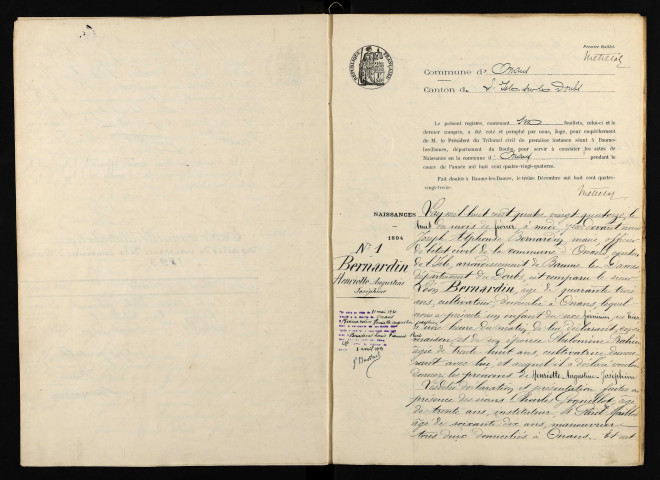 RÉPUBLIQUE FRANÇAISE
Premier feuillet.
Commune d' Onans
Canton de L'Isle-sur-le-Doubs
Le présent registre, contenant feuillets, celui-ci et le
dernier compris, a été coté et paraphé par nous, Juge, pour empêchement
de M. le Président du Tribunal civil de première instance séant à Baume-
les-Dames, département du Doubs, pour servir à consigner les actes de
Naissance en la commune d' Onans pendant le
cours de l'année mil huit cent quatre-vingt-quatorze.
Fait double à Baume-les-Dames, le treize Décembre mil huit cent quatre-
vingt-treize.
NAISSANCES
1894
N° 1
Bernardin
Henriette Augustine
Joséphine
L'an mil huit cent quatre vingt quatorze, le
huit du mois de février à midi, par devant nous
Joseph Alphonse Bernardin, maire, officier
de l'état civil de la commune d'Onans, canton
de l'Isle, arrondissement de Baume les Dames
département du Doubs, est comparu le sieur
Léon Bernardin, âgé de quarante trois
ans, cultivateur, domicilié à Onans, lequel
nous a présenté un enfant du sexe féminin, né hier
à une heure du matin, de lui déclarant, en sa
maison, et de son épouse Philomène
âgée de trente huit ans, cultivatrice, demeu-
rant avec lui, et auquel il a déclaré vouloir
donner les prénoms de Henriette-Augustine-Joséphine
Lesdites déclaration et présentation faites en
présence des sieurs Charles âgé
de trente ans, instituteur, et
âgé de soixante-dix ans, manouvrier
tous deux domiciliés à Onans. Et ont